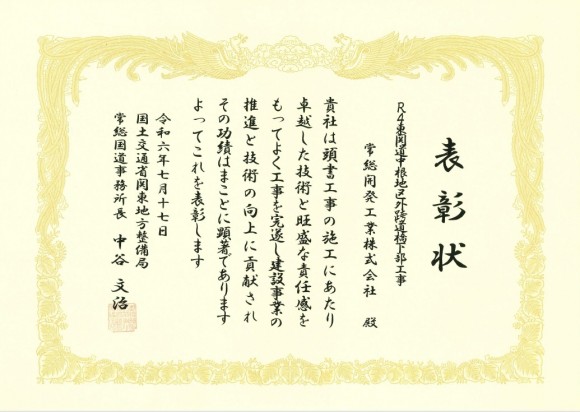 表彰状
R4東関道中根地区外跨道橋下部工事
常総開発工業株式会社 殿
貴社は頭書工事の施工にあたり
卓越した技術と旺盛な責任感を
もってよく工事を完遂し建設事業の
推進と技術の向上に貢献され
その功績はまことに顕著であります
よってこれを表彰します
令和六年七月十七日
国土交通省関東地方整備局
常総国道事務所長 中谷文治